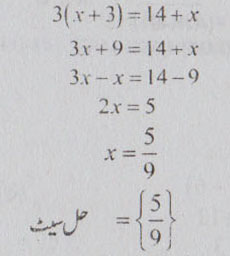 3(x+3)=14+x
3x+9=14+x
3x−x=14−9
2x=5
x=5/9
حل سیٹ ={5/9}